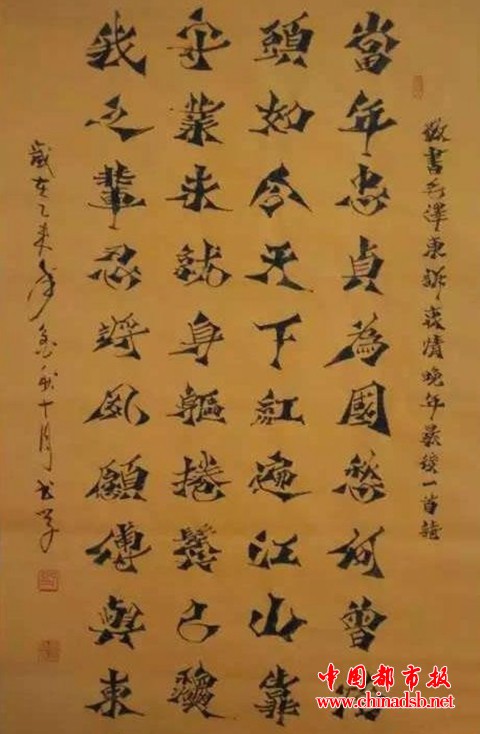 敬書毛澤東訴衷情晚年最後一首詩
當年忠貞為國愁何曾
頭如今天下紅遍江山靠
守業未就身軀捲鬢已
我之輩忍將夙願傅與東
歲在乙未年金秋十月
中国都市报
www.chinadsb.net